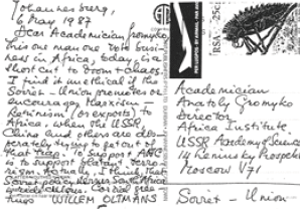 Johannesburg,
6 May 1987
Dear Academician Gromyko,
This one man one vote busi-
ness in Africa, today, is a
short cut to doom + chaos.
I find it unethical if the
Soviet-Union promotes or
encourages Marxism-
Leninism (or exports) to
Africa, when the USSR,
China and others are also
desperately trying to get out of
that trap. To support ANC
is to support blatant terro-
rism. Actually, I think, that
Soviet policy versus South Africa
Cordial gree-
tings WILLEM OLTMANS
RSA 25c
Academician
Anatoly Gromyko
Director
Africa Institute.
USSR Academy of Science
14 Leninsky Prospekt
Moscow V71
Soviet-Union